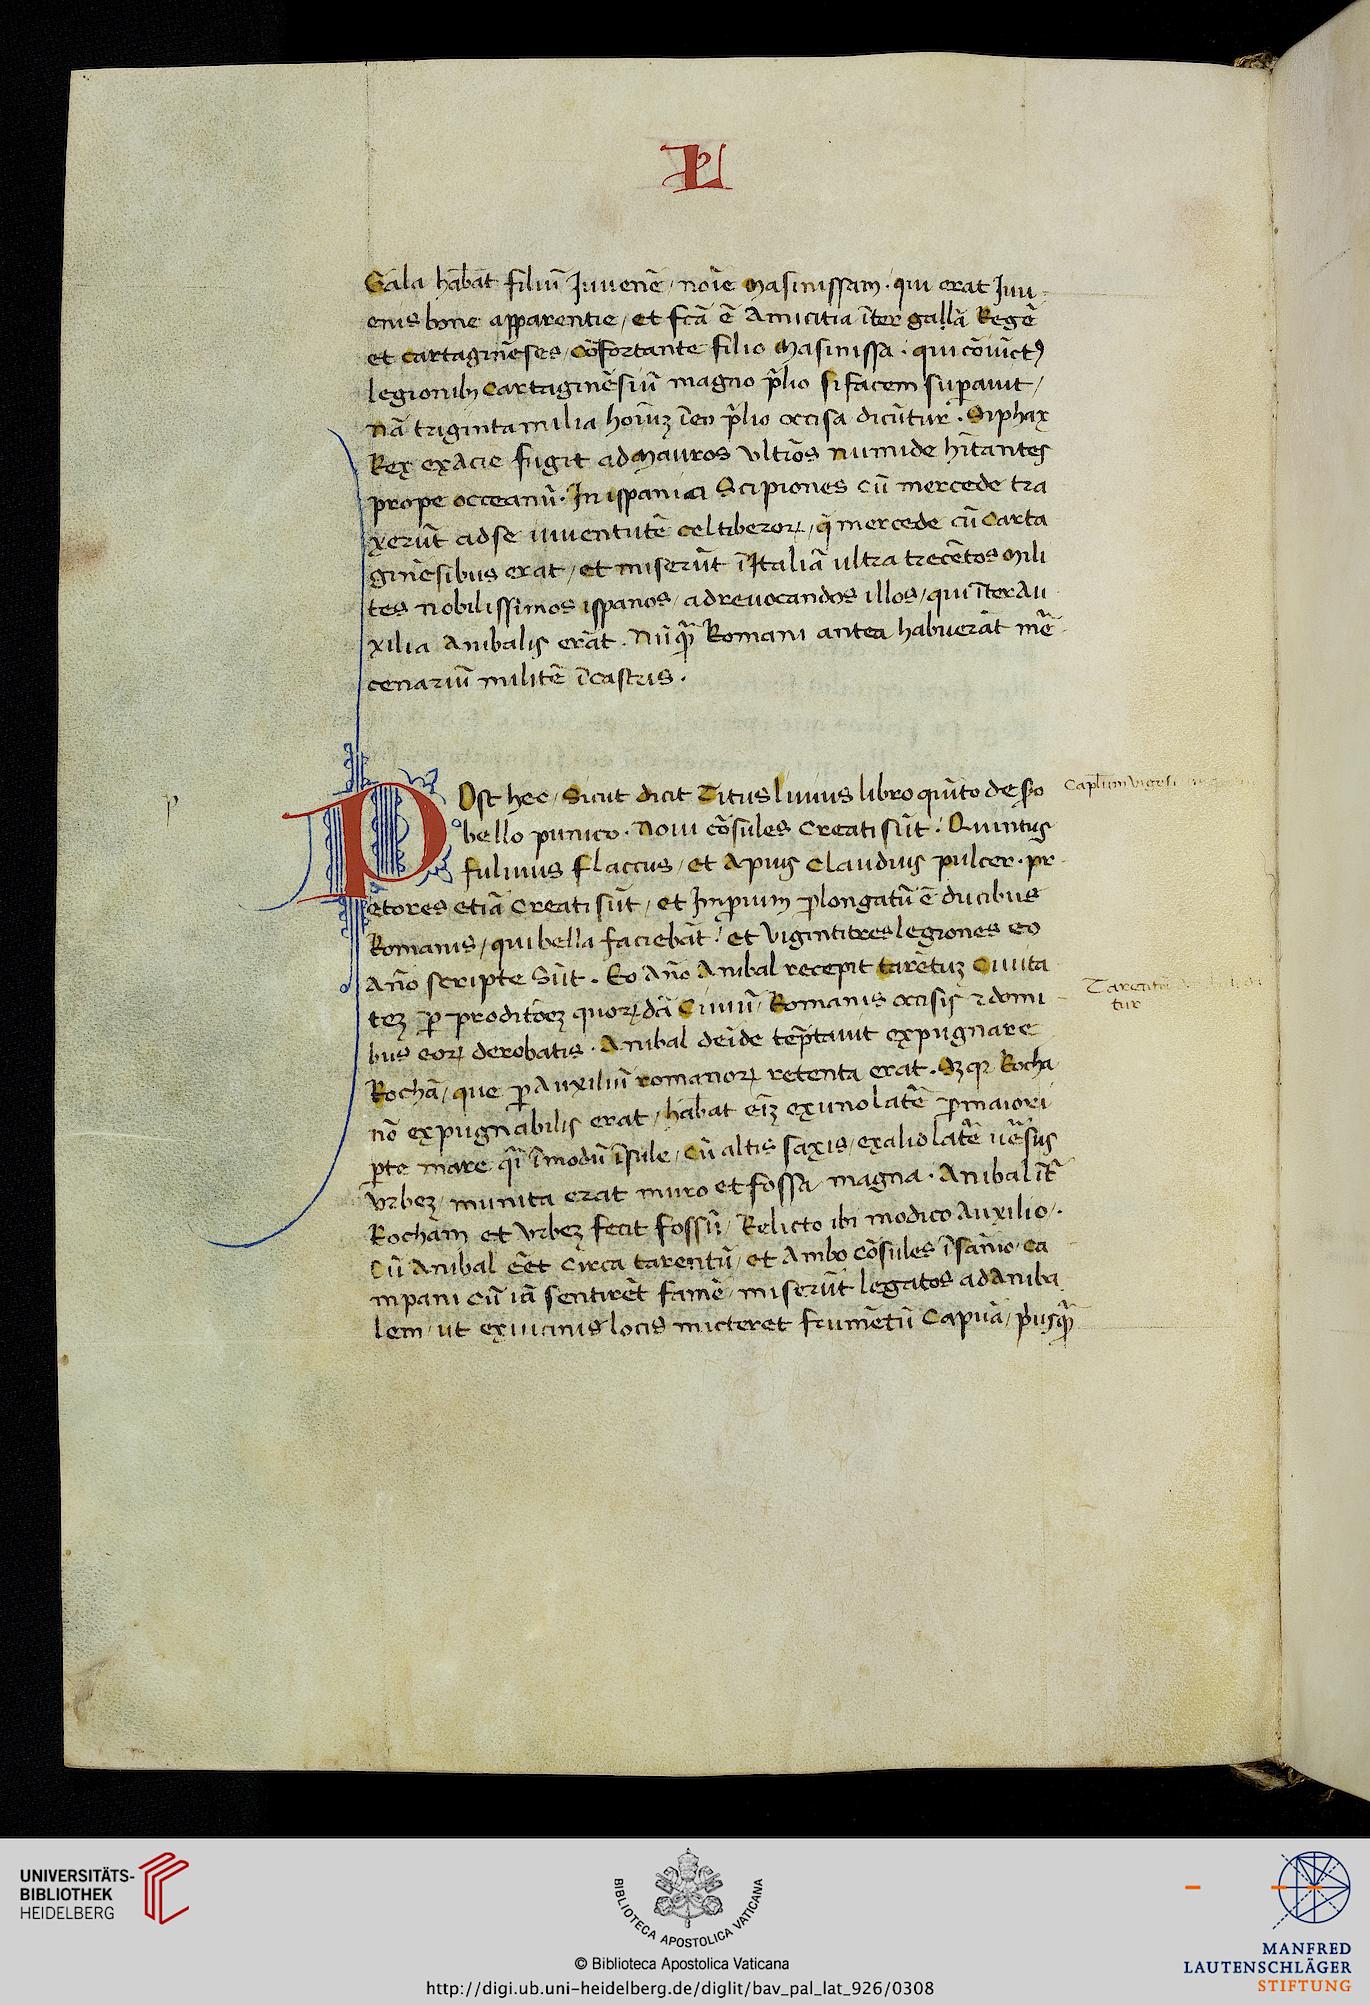 L
Gala hab̄at filiū Juuenē / noīe Masinissam · qui erat Juu
enis bone apparentie / et fcā ē Amicitia īter gallā Regē
et cartaginēses / cōfortante filio Masinissa · qui cōiūctꝰ
legionibꝫ Cartaginēsiū magno p̄lio sifacem suꝑauit /
nā triginta milia hoīuꝫ īeo p̄lio occisa dicūtur · Siphax
Rex exacie fugit ad Mauros vltiōs numide hītantes
prope occeanū · In ispania Scipiones cū mercede tra
xerūt adse iuuentutē celtiberoꝝ / q̄ mercede cū Carta
ginēsibus erat / et miserūt īItaliā ultra trecētos Mili
tes nobilissimos ispanos / adreuocandos illos / qui īterAu
xilia Anibalis erāt · Nūꝙ̄ Romani antea habuerāt mē
cenariū militē īcastris ·
POst hec / Sicut dicit Titus liuius libro quīto de sc̄o
bello punico · Noui cōsules Creati sūt · Quintus
fuluius flaccus / et Apius Claudius pulcer · pr
etores etiā Creati sūt / et Imꝑium ꝓlongatū ē ducibus
Romanis / qui bella faciebāt · et vigintitres legiones eo
Año scripte Sūt · Eo Año Anibal recepit tarētuꝫ Ciuita
teꝫ ꝑ proditōeꝫ quoꝝdā Ciuiū / Romanis occisis ⁊ domi
bus eoꝝ derobatis · Anibal deīde tēptauit expugnare
Rochā / que ꝑ Auxiliū romanoꝝ retenta erat · Sꝫ qꝛ Rocha
nō expugnabilis erat / hab̄at eīꝫ exuno latē ꝓmaiori
ꝑte mare q̄i īmodū īsule / Cū altis saxis / exalio lat̄e ūēsus
vrbeꝫ / munita erat muro et fossa magna · Anibal īt̄
Rocham et vrbeꝫ fecit fossū / Relicto ibi modico Auxilio / ·
Cū Anibal eēt circa tarentū / et Ambo Cōsules īsānio / Ca
mpani cū iā sentirēt famē / miserūt legatos adAniba
lem / ut exuicinis locis micteret frumētū Capuā / pͥusꝙ̄
Cap̄lum
Tarentū
tur
p
UNIVERSITÄTS-
BIBLIOTHEK
HEIDELBERG
BIBLIOTECA APOSTOLICA VATICANA
© Biblioteca Apostolica Vaticana
http://digi.ub.uni-heidelberg.de/diglit/bav_pal_lat_926/0308
MANFRED
LAUTENSCHLÄGER
STIFTUNG